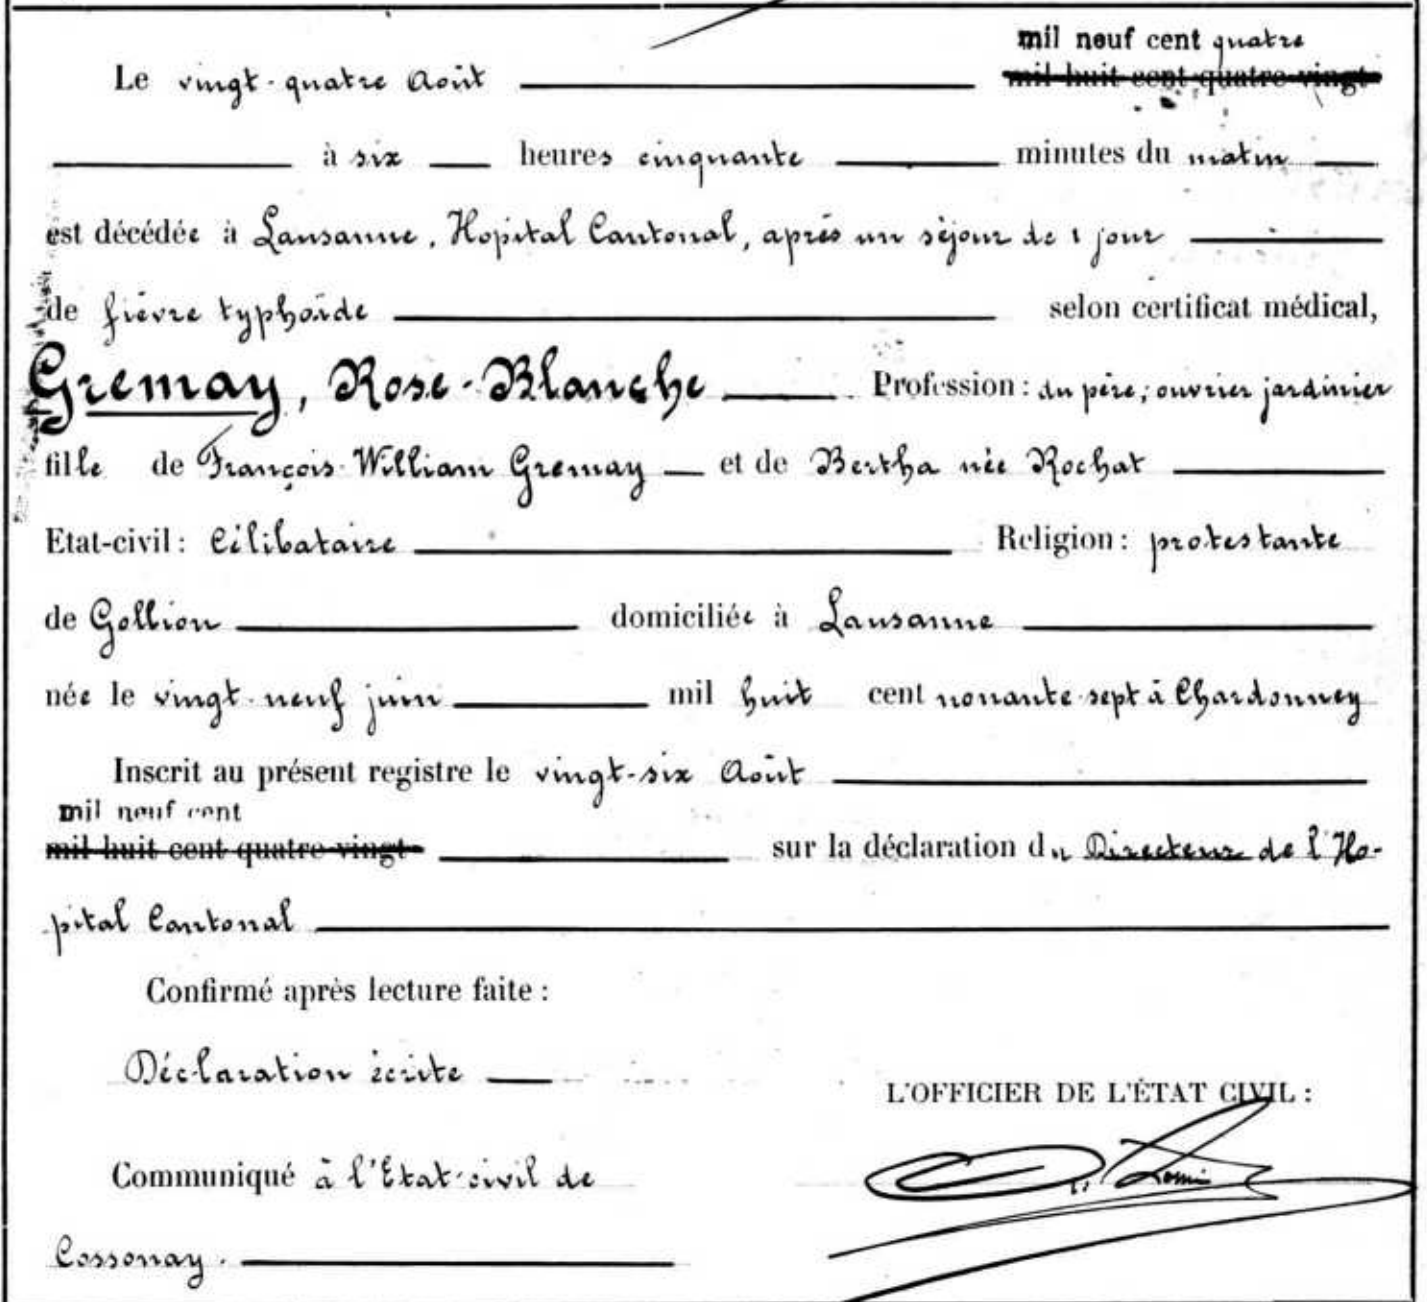 mil neuf cent quatre
Le vingt-quatre Août mil huit cent quatre-vingt
à six heures cinquante minutes du matin
est décédée à Lausanne, Hopital Cantonal, après un séjour de 1 jour
de fièvre typhoïde selon certificat médical,
Gremay, Rose-Blanche Profession : du père; ouvrier jardinier
fille de François-William Gremay et de Bertha née Rochat
Etat-civil : Célibataire Religion : protestante
de Gollion domiciliée à Lausanne
née le vingt-neuf juin mil huit cent nonante-sept à Chardonney
Inscrit au présent registre le vingt-six Août
mil neuf cent
mil huit cent quatre-vingt sur la déclaration du Directeur de l'Ho-
pital Cantonal
Confirmé après lecture faite :
Déclaration écrite
L'OFFICIER DE L'ÉTAT CIVIL :
Communiqué à l'Etat-civil de
Cossonay.